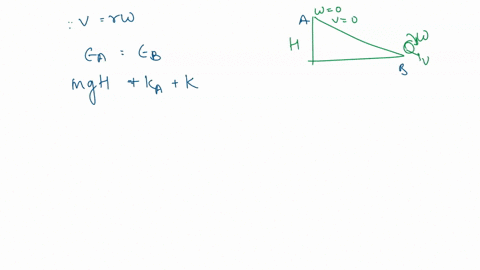 ∵ V = rω
E_A = E_B
mgH + K_A + K
A ω=0
v=0
H
ω
v
B